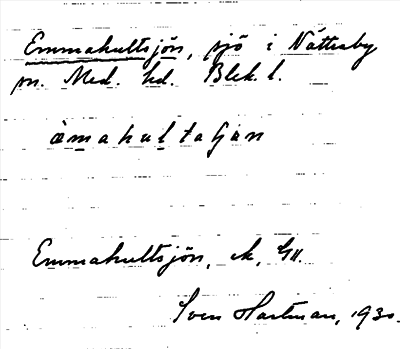 Emmakultsjön, sjö i Nättraby
sn. Med. hd. Blek. l.
Emmakultsjön, ek, G11.
Sven Hartman, 1930.